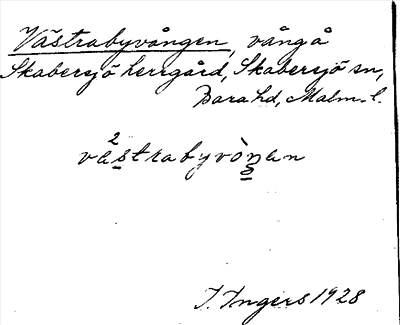 Västrabyvången, vång å
Skabersjö herrgård, Skabersjö sn,
Bara hd, Malm. l.
2
västrabyvòŋan
I. Ingers 1928